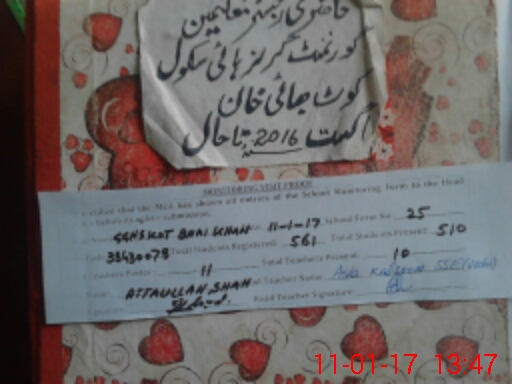 حاضری رجسٹر معلمین
گورنمنٹ گرلز ہائی سکول
کوٹ بھائی خان
اگست 2016 تا حال
MONITORING VISIT PROOF
that the MEA has shown all entries of the School Monitoring Form to the Head
before submission.
GGHS KOT BHAI KHAN 11-1-17 School Form No 25
Code 38430078 Total Students Registered: 561 Total Students Present: 510
Teachers Posted: 11 Total Teachers Present: 10
Name: ATTAULLAH SHAH Teacher Name: SSE
Signature: Head Teacher Signature:
11-01-17 13:47